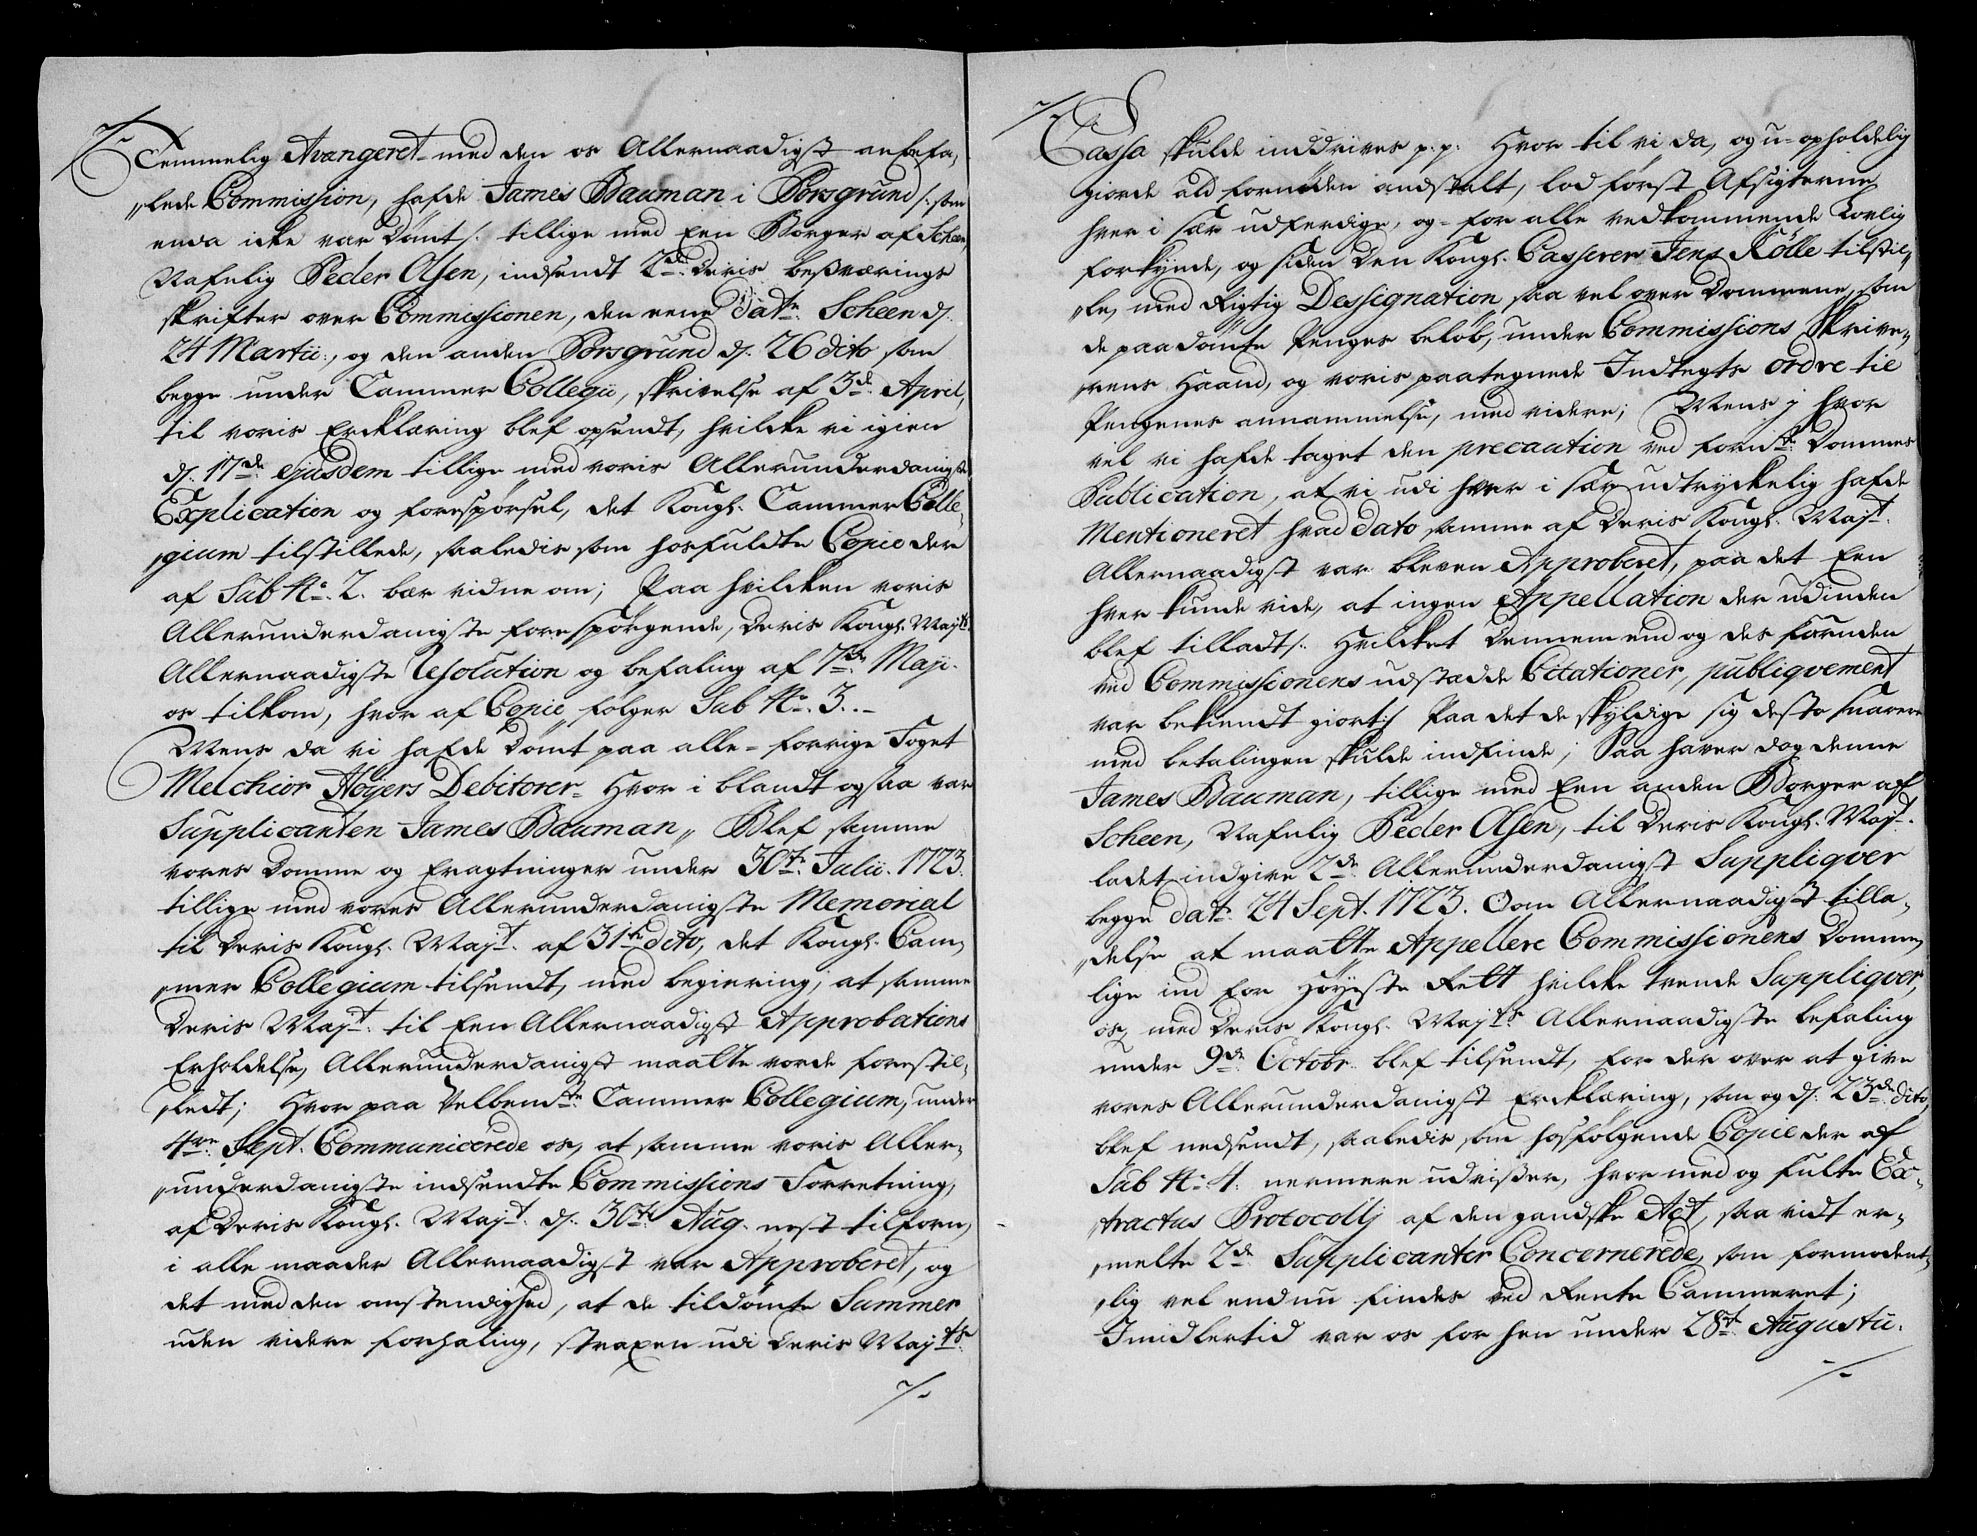 Temmelig Avangeret med den os Allernaadigst anbefa„
„lede Commission, hafde James Bauman i Borsgrund /: som
enda icke var Dømt :/ tillige med Een Borger af Scheen,
Nafnlig Peder Olsen, indsendt 2de Deris besværings
skrifter over Commissionen, den eene dat: Scheen d:
24 Martii, og den anden Borsgrund d: 26 dito som
begge under Cammer Collegii, skrivelse af 3de April,
til voris Ercklæring blef opsendt, hvilcke vi igien
d: 17de ejusdem tillige med voris Allerunderdanigste
Explication og forespørsel, det Kongl. Cammer Colle„
„gium tilstillede, saaledis som hosfuldte Copie der
af Sub No 2. bær vidne om; Paa hvilcken voris
Allerunderdanigste forespørgende, Deris Kongl. Mayts
Allernaadigste Resolution og befaling af 7de Maji
os tilkom, hvor af Copie følger Sub No. 3.
Mens da vi hafde Dømt paa alle forrige Foget
Melchior Høyers Debitorer, Hvor i blandt ogsaa var
Supplicanten James Bauman, Blef samme
vores Domme og Eragtninger under 30te Julii 1723
tillige med vores Allerunderdanigste Memorial
til Deris Kongl. Mayt. af 31te dito, det Kongl. Cam„
„mer Collegium tilsendt, med begiering, at samme
Deris Mayt. til Een Allernaadigst Approbations
Erholdelse, Allerunderdanigst maatte vorde forestil„
„ledt; Hvor paa Velbemte Cammer Collegium, under
4re Sept. Communicerede os, at samme voris Aller„
„underdanigste indsendte Commissions Forretning,
af Deris Kongl. Mayt. d: 30te Aug. nest tilforn,
i alle maader Allernaadigst var Approberet, og
det med den omstendighed, at de tildømte Summer
uden videre forhaling, straxen udi Deris Mayts
Cassa skulde inddrives p.p. Hvor til vi da, og u-opholdelig
giorde ald fornøden andstalt, lod først Afsigterne
hver i sær udferdige, og for alle vedkommende Lovlig
forkynde, og siden Den Kongl. Casserer Jens Kölle tilstil„
„le, med Rigtig Dessignation saa vel over Dommene, som
de paadømte Penges beløb, under Commissions Skrive„
„rens Haand, og voris paategnede Indtegts ordre til
Pengenes annammelse, med videre; Mens j hvor
vel vi hafde taget den precaution ved fornte Dommes
Publication, at vi udi hver i sær udtryckelig hafde
Mentioneret hvad dato samme af Deris Kongl. Mayt.
Allernaadigst var bleven Approberet, paa det Een
hver kunde vide, at ingen Appellation der udinden
blef tilladt /: Hvilcket Dennem end og des foruden
ved Commissionens udstædde Citationer, publiqvement
var bekiendt giort :/ Paa det de skyldige sig desto snarere
med betalingen skulde indfinde; Saa haver dog denne
James Bauman, tillige med Een anden Borger af
Scheen, Nafnlig Peder Olsen, til Deris Kongl. Mayt.
ladet indgive 2de Allerunderdanigst Suppliqver
begge dat: 24 Sept. 1723. Om Allernaadigst tilla„
„delse at maatte Appellere Commissionens Domme,
lige ind for Høyeste Rett hvilcke tvende Suppliqver,
os, med Deris Kongl. Mayts Allernaadigste befaling
under 9de Octobr. blef tilsendt, for der over at give
vores Allerunderdanigst Ercklæring, som og d: 23de dito,
blef nedsendt, saaledis som hosfølgende Copie der af
Sub No 4. nermere udviser, hvor med og fulte Ex„
„tractus Protocolli af den gandske Act, saa vidt er„
„melte 2de Supplicanter Concernerede, som formodent„
„lig vel endnu findes ved Rente Cammeret;
Imidlertid var os for hen under 28de Augustii.